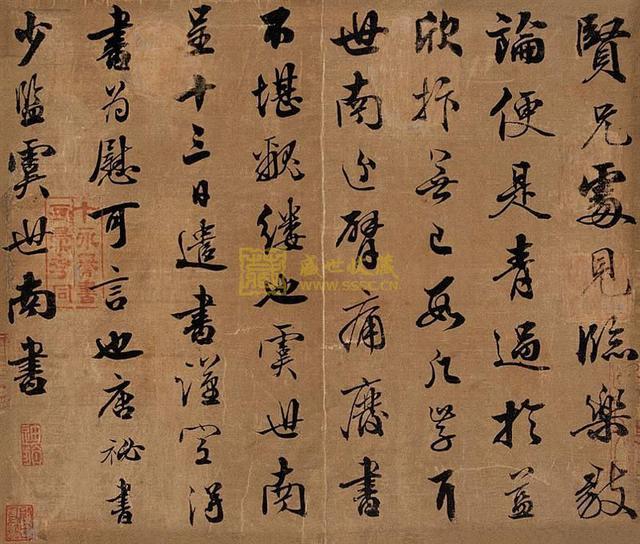 賢兄處見臨樂毅
論便是青過於藍
欣抃無已
世南近臂痛廢書
不堪覼縷也虞世南
呈十三日遣書謹空得
書為慰可言也唐祕書
少監虞世南書
盛世收藏
WWW.SSSC.CN